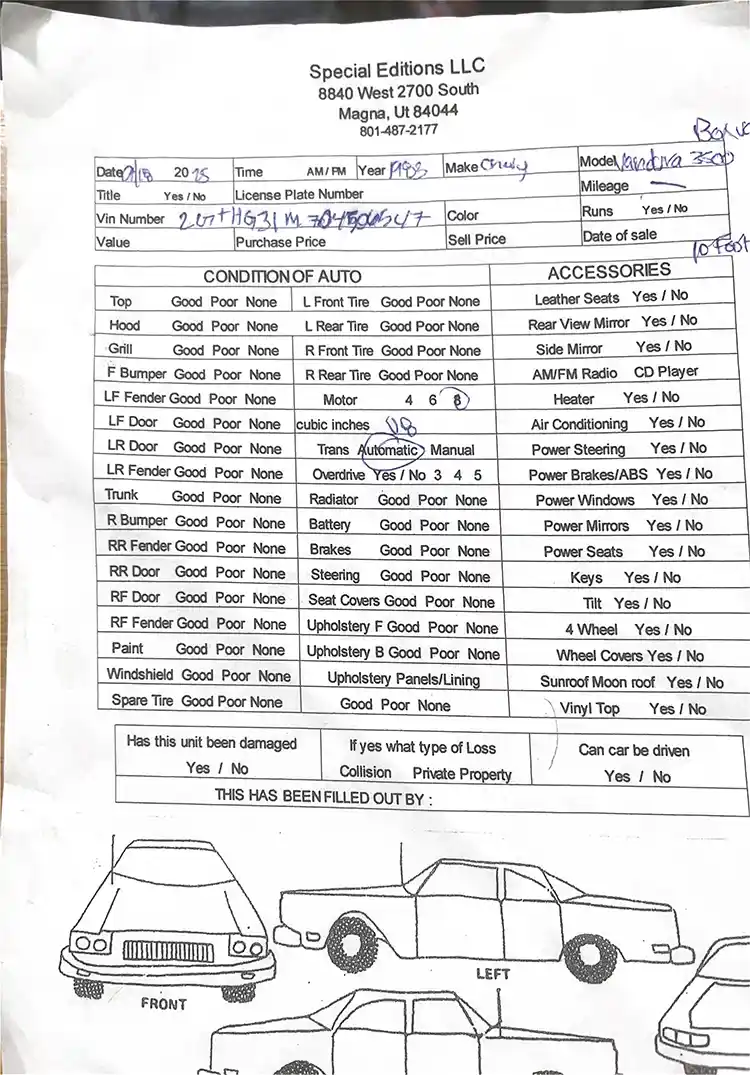 Special Editions LLC
8840 West 2700 South
Magna, Ut 84044
801-487-2177
Date 20 25 Time AM / PM Year Make Chevy Model Vandura 3500
Title Yes / No License Plate Number Mileage —
Vin Number Color Runs Yes / No
Value Purchase Price Sell Price Date of sale
10 Foot
CONDITION OF AUTO ACCESSORIES
Top Good Poor None L Front Tire Good Poor None Leather Seats Yes / No
Hood Good Poor None L Rear Tire Good Poor None Rear View Mirror Yes / No
Grill Good Poor None R Front Tire Good Poor None Side Mirror Yes / No
F Bumper Good Poor None R Rear Tire Good Poor None AM/FM Radio CD Player
LF Fender Good Poor None Motor 4 6 8 Heater Yes / No
LF Door Good Poor None cubic inches V8 Air Conditioning Yes / No
LR Door Good Poor None Trans Automatic Manual Power Steering Yes / No
LR Fender Good Poor None Overdrive Yes / No 3 4 5 Power Brakes/ABS Yes / No
Trunk Good Poor None Radiator Good Poor None Power Windows Yes / No
R Bumper Good Poor None Battery Good Poor None Power Mirrors Yes / No
RR Fender Good Poor None Brakes Good Poor None Power Seats Yes / No
RR Door Good Poor None Steering Good Poor None Keys Yes / No
RF Door Good Poor None Seat Covers Good Poor None Tilt Yes / No
RF Fender Good Poor None Upholstery F Good Poor None 4 Wheel Yes / No
Paint Good Poor None Upholstery B Good Poor None Wheel Covers Yes / No
Windshield Good Poor None Upholstery Panels/Lining Sunroof Moon roof Yes / No
Spare Tire Good Poor None Good Poor None Vinyl Top Yes / No
Has this unit been damaged If yes what type of Loss Can car be driven
Yes / No Collision Private Property Yes / No
THIS HAS BEEN FILLED OUT BY :
LEFT
FRONT